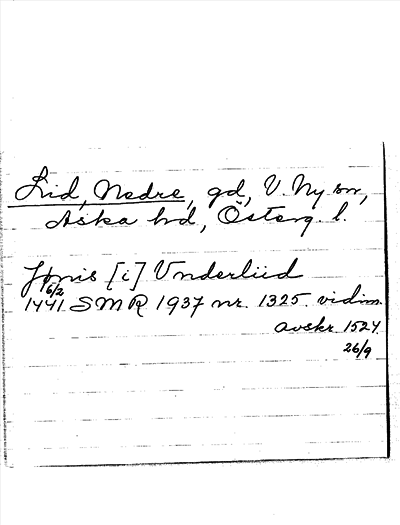 Lid, Nedre, gd, V. Ny sn,
Aska hd, Österg. l.
Jönis [i] Vnderliid
6/2
1441 SMR 1937 nr. 1325. vidim.
avskr. 1524
26/9